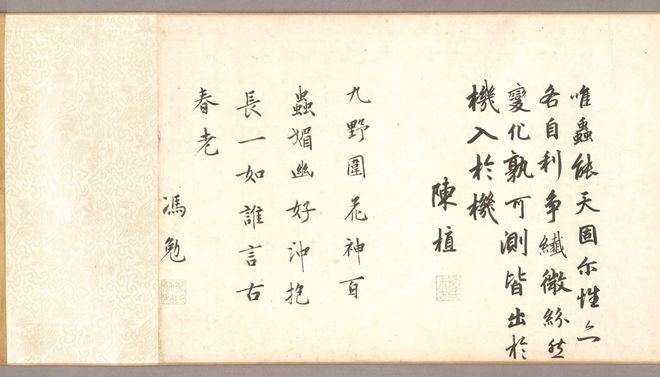 唯蟲能天固尔性亽
各自利争纖微紛然
變化孰可測皆出於
機入於機
陳植
九野圃花神百
蟲媚幽好沖抱
長一如誰言古
春老
馮勉